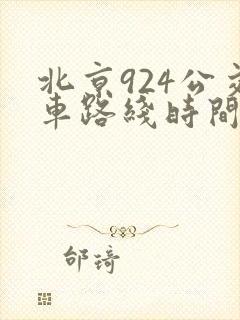 北京924公交
車路綫時間
邰琦